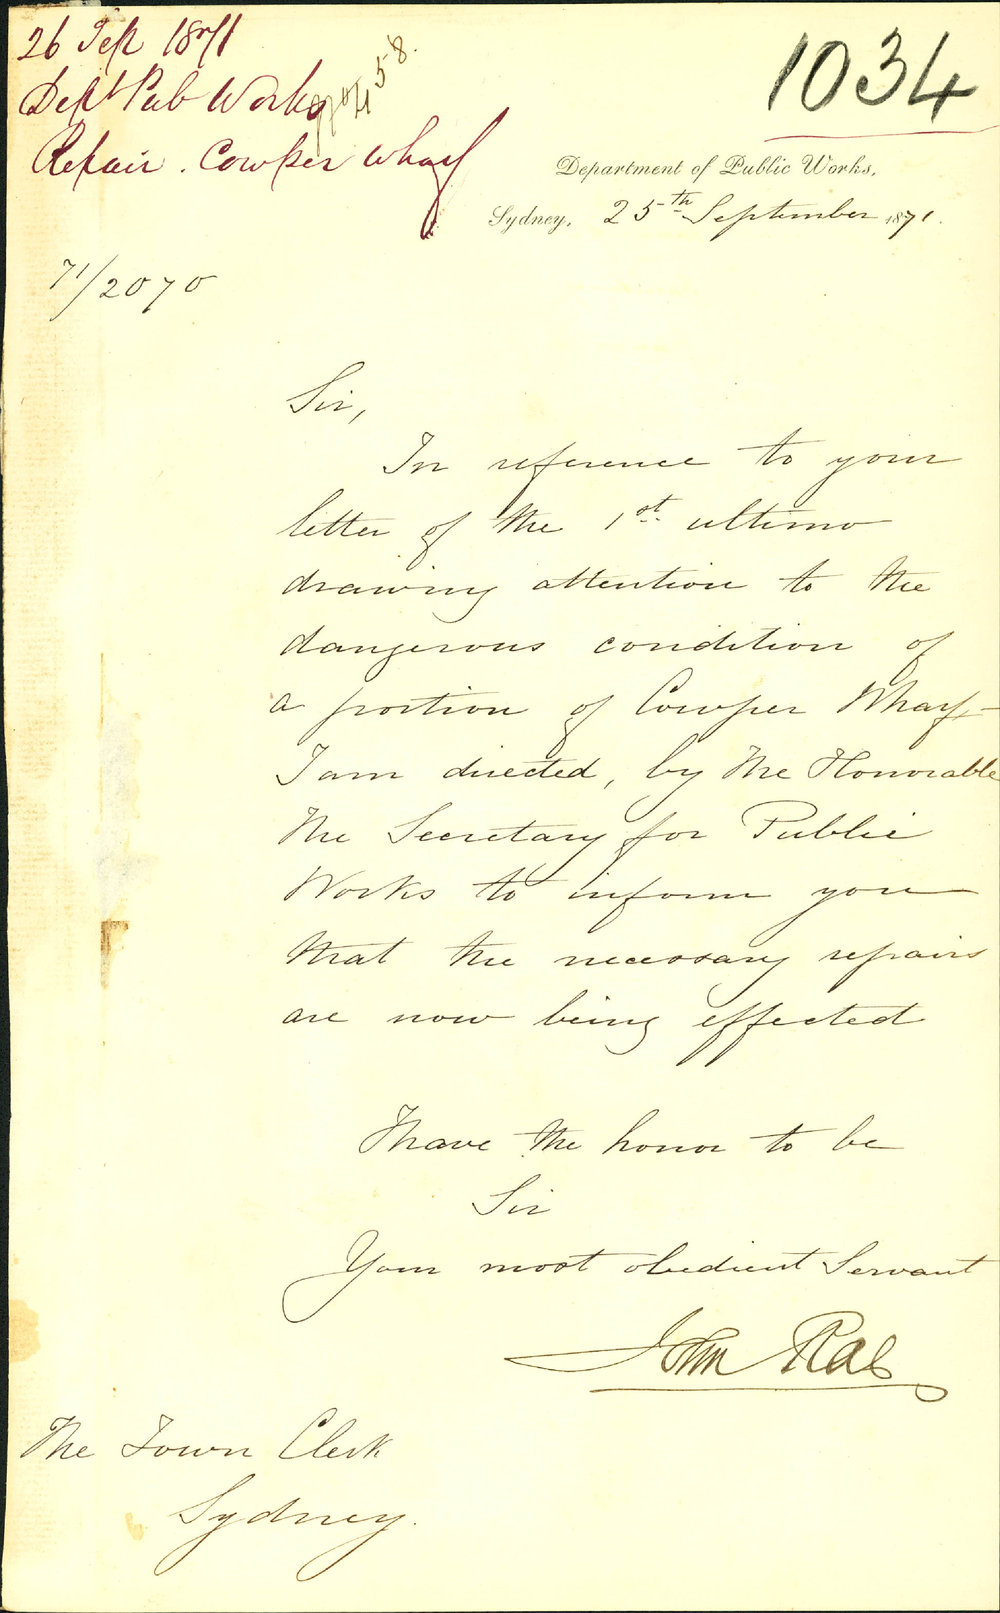 26 Sep 1871
Dept Pub Works
Repair. Cowper Wharf
458.
1034
Department of Public Works,
Sydney, 25th September 1871.
71/2070
Sir,
In reference to your
letter of the 1st ultimo
drawing attention to the
dangerous condition of
a portion of Cowper Wharf—
I am directed, by the Honorable
the Secretary for Public
Works to inform you
that the necessary repairs
are now being effected
I have the honor to be
Sir
Your most obedient Servant
John Rae
The Town Clerk
Sydney.